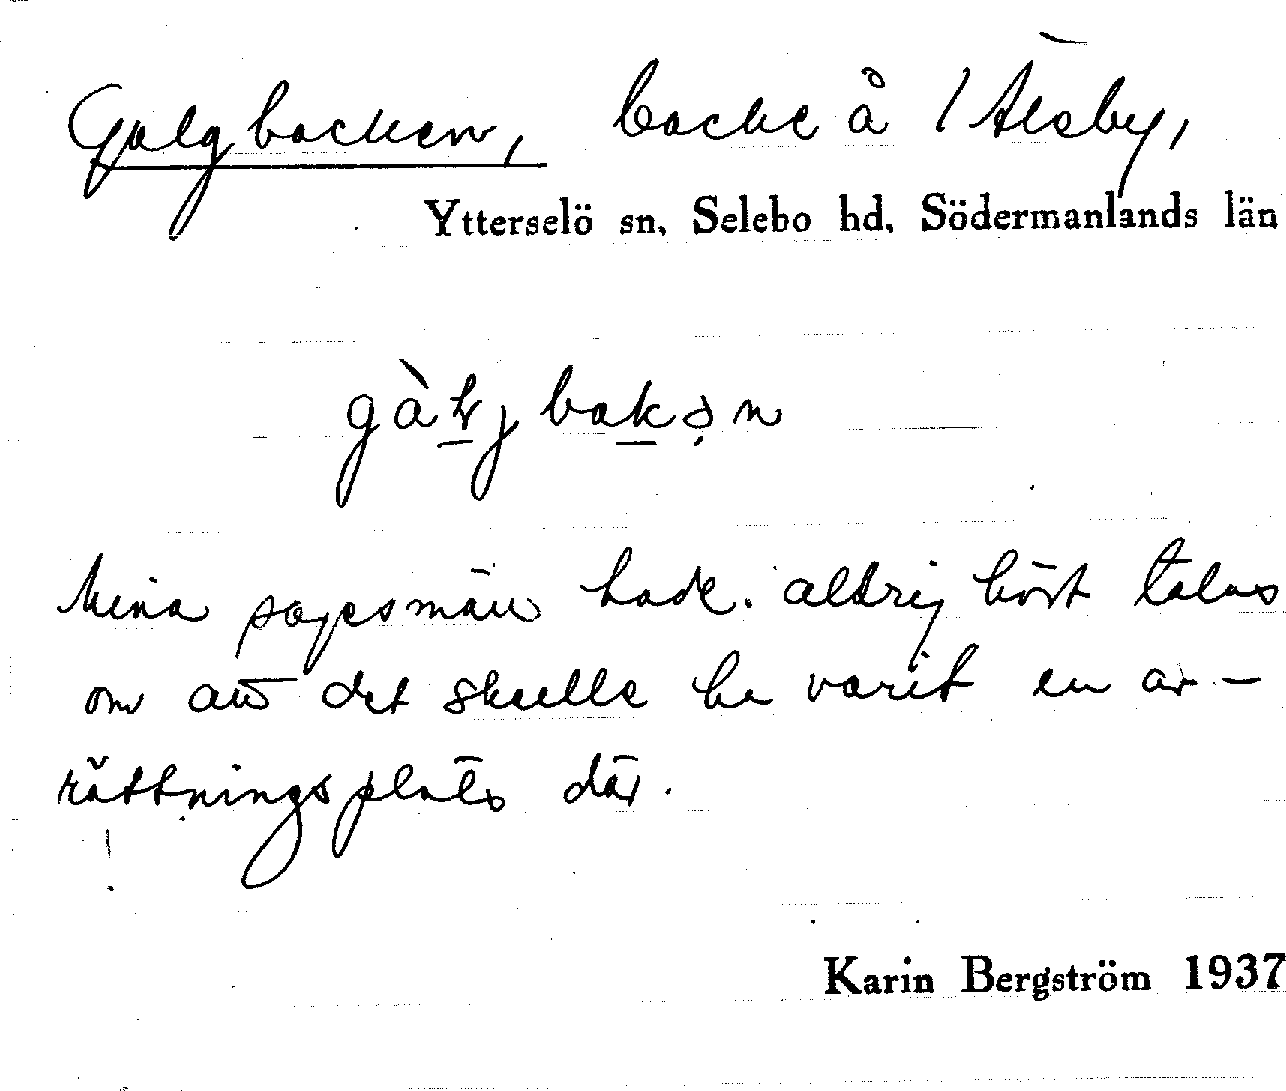 Galgbacken, backe å 1 Älsby,
Ytterselö sn, Selebo hd, Södermanlands län
bakən
Mina sagesmän hade aldrig hört talas
om att det skulle ha varit en av-
rättningsplats där.
Karin Bergström 1937